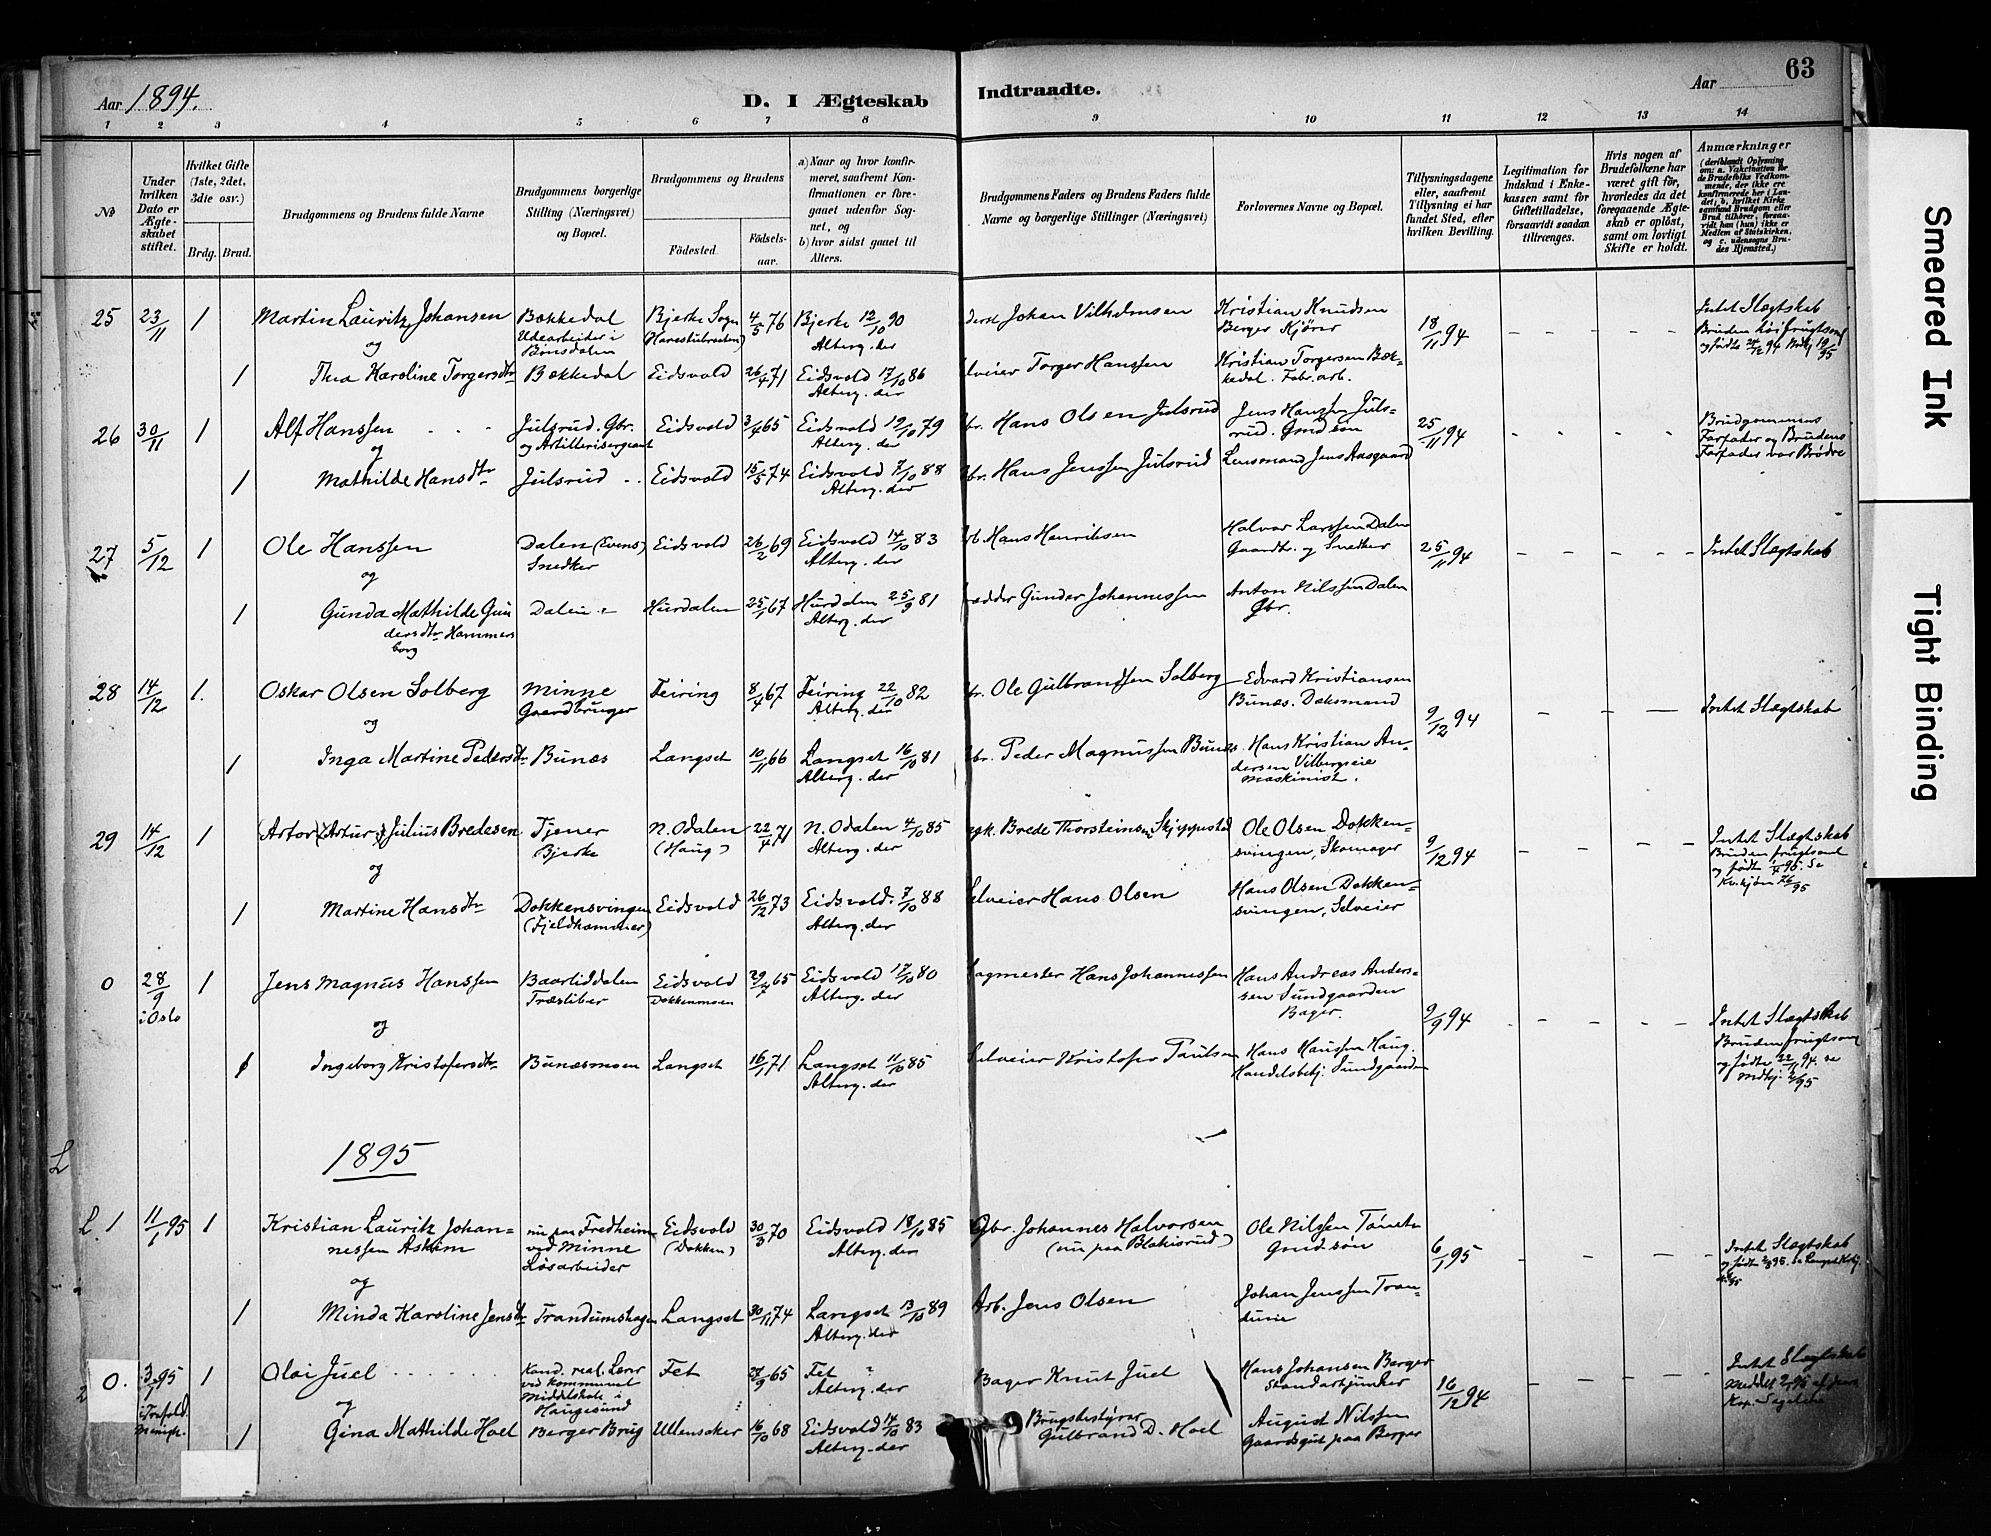 Aar 1894.
D. I Ægteskab Indtraadte.
Aar
63
1 2 3 4 5 6 7 8 9 10 11 12 13 14
No
Under hvilken Dato er Ægteskabet stiftet.
Hvilket Gifte (1ste, 2det, 3die osv.)
Brdg. Brud.
Brudgommens og Brudens fulde Navne
Brudgommens borgerlige Stilling (Næringsvei) og Bopæl.
Brudgommens og Brudens
Födested.
Födselsaar.
a) Naar og hvor konfirmeret, saafremt Konfirmationen er foregaaet udenfor Sognet, og
b) hvor sidst gaaet til Alters.
Brudgommens Faders og Brudens Faders fulde Navne og borgerlige Stillinger (Næringsvei)
Forlovernes Navne og Bopæl.
Tillysningsdagene eller, saafremt Tillysning ei har fundet Sted, efter hvilken Bevilling.
Legitimation for Indskud i Enkekassen samt for Giftetilladelse, forsaavidt saadan tiltrænges.
Hvis nogen af Brudefolkene har været gift för, hvorledes da det foregaaende Ægteskab er oplöst, samt om lovligt Skifte er holdt.
Anmærkninger
(deriblandt Oplysning om: a. Vakcination for de Brudefolks Vedkommende, der ikke ere konfirmerede her i Landet; b. hvilket Kirkesamfund Brudgom eller Brud tilhörer, forsaavidt han (hun) ikke er Medlem af Statskirken, og c. udensogns Brudes Hjemsted.)
25 23/11 1 Martin Lauritz Johansen Bækkedal Udearbeider i Bönsdalen Bjerke Sogn 4/5 76 Bjerke 12/10 90 Alterg. der Johan Vilhelmsen Kristian Knudsen Berger Kjörer 18/11 94 – – – – Intet Slægtskab Bruden frugtsom
og
1 Thea Karoline Torgersdtr Bækkedal Eidsvold 26/4 71 Eidsvold 17/10 86 Alterg. der Torger Hanssen Kristian Torgersen Bækkedal. Fabr.arb.
26 30/11 1 Alf Hanssen Julsrud. Gbr. og Artillerisergeant Eidsvold 3/4 65 Eidsvold 12/10 79 Alterg. der Hans Olsen Julsrud Jens Hanssen Julsrud. Gmdsön 25/11 94 - - - - Brudgommens Farfader og Brudens Farfader var Brödre
og
1 Mathilde Hansdtr Julsrud Eidsvold 15/5 74 Eidsvold 7/10 88 Alterg. der Hans Jenssen Julsrud Lensmand Jens Aasgaard
27 5/12 1 Ole Hanssen Dalen (Evens) Snedker Eidsvold 26/2 69 Eidsvold 14/10 83 Alterg. der Hans Henriksen Halvor Larssen Dalen Gaardbr. og Snedker 25/11 94 – – – – Intet Slægtskab
og
1 Gunda Mathilde Gundersdtr Hammersborg Dalen Hurdalen 25/1 67 Hurdalen 25/9 81 Alterg. der Gunder Johannessen Anton Nilssen Dalen Gbr.
28 14/12 1. Oskar Olsen Solberg Minne Gaardbruger Feiring 8/4 67 Feiring 22/10 82 Alterg. der Ole Gulbrandsen Solberg Edvard Kristiansen Bunæs. Dæksmand 9/12 94 – – — Intet Slægtskab
og
1 Inga Martine Pedersdtr Bunæs Langset 10/11 66 Langset 16/10 81 Alterg. der Peder Magnussen Bunæs Hans Kristian Andersen Vilbergseie Maskinist.
29 14/12 1 (Artor) (Artur) Julius Bredesen Tjener Bjerke N. Odalen (Haug) 22/4 71 N. Odalen 4/10 85 Alterg. der Brede Thorsteinsen Skjeppestad Ole Olsen Dokkensvingen, Skomager 9/12 94 – – – – Intet Slægtskab Bruden frugtsom
og
1 Martine Hansdtr Dokkensvingen (Fjeldhammer) Eidsvold 26/12 73 Eidsvold. 7/10 88 Alterg. der Selveier Hans Olsen Hans Olsen Dokkensvingen, Selveier
0 28/9 i Oslo 1 Jens Magnus Hanssen Baarliddalen Træsliber Eidsvold Dokkenmoen 29/7 65 Eidsvold 17/10 80 Alterg. der Sagmester Hans Johannessen Hans Andreas Anderssen Sundgaarden Bager. 9/9 94 - - - - Intet Slægtskab Bruden frugtsom og födte 22/11 94. se
og
1 Ingeborg Kristofersdtr Bunæsmoen Langset 16/1 71 Langset 11/10 85 Alterg. der Selveier Kristofer Paulsen Hans Hanssen Haug. Handelsbetj. Sundgaarden
1895
L. 1 11/1 95 1 Kristian Lauritz Johannessen Askim nu paa Fredheim ved Minne Lösarbeider Eidsvold (Dokken) 30/3 70 Eidsvold 18/10 85 Alterg. der Gbr. Johannes Halvorsen (nu paa Blakisrud) Ole Nilssen Gmdsön 6/1 95 – – – – Intet Slægtskab
og
1 Minda Karoline Jensdtr Trandumshagen Langset 30/11 74 Langset 13/10 89 Alterg. der Arb. Jens Olsen Johan Jenssen
0. 3/1 95 1 Olai Juel Kand. real. Lærer ved kommunal Middelskole i Haugesund Fet 27/9 65 Fet ? Alterg. der Bager Knut Juel Hans Johansen Berger Standartjunker 16/12 94 – – – – Intet Slægtskab
og
1 Gina Mathilde Hoel Berger Brug Ullensaker 16/10 68 Eidsvold 14/10 83 Alterg. der Brugsbestyrer Gulbrand D. Hoel August Nilssen Gaardsgut paa Berger
Smeared Ink
Tight Binding